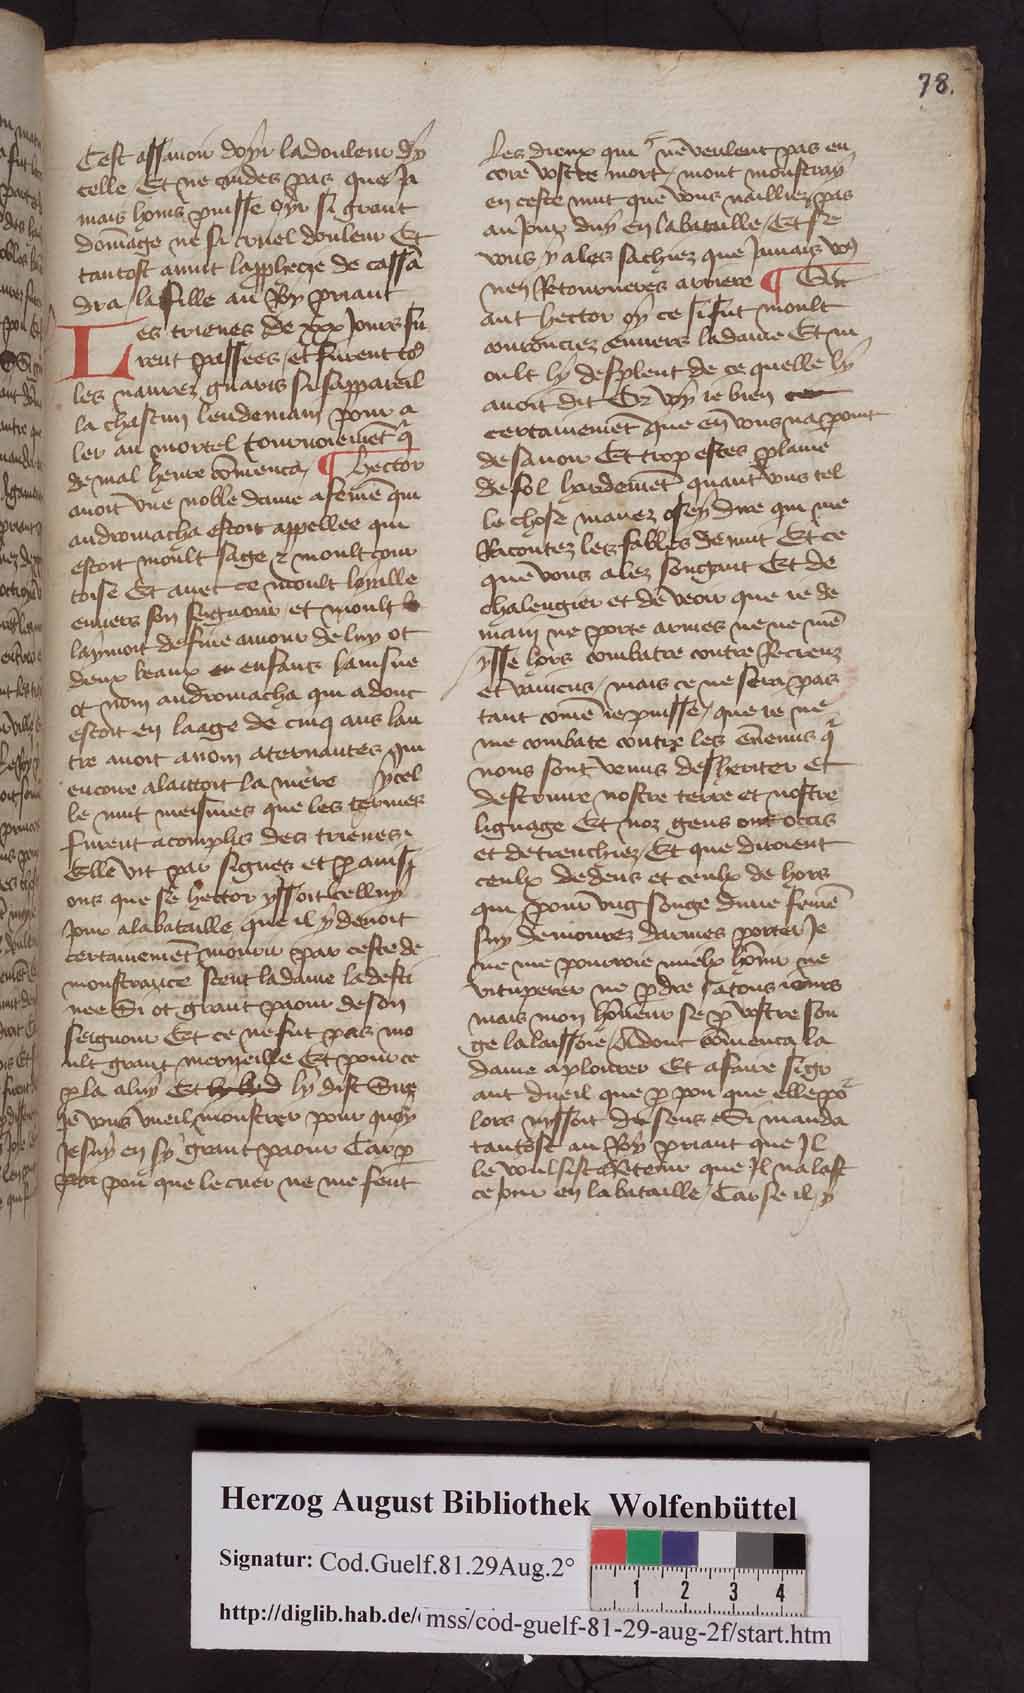 78.
Cest assauoir doyr ladouleur dy
celle Et ne cuides pas que Ja
mais homs puisse oyr si grant
dommage ne si cruel douleur Et
tantost auint lapphecie de cassa
dra / la fille au Roy priant
Les trieues de xxx Jours fu
rent passees / et furent to9
les naurez guaris si sappareil
la chascun lendemain pour a
ler au mortel tournoiemet q
de mal heure comenca / ¶ hector
auoit vne noble dame afeme qui
andromacha estoit appellee qui
estoit moult sage & moult cour
toise Et auec ce moult
enuers son seignour et moult
laymoit de fine amour de luy ot
deux beaux enfans lainsne
ot nom andromacha qui adonc
estoit en laage de cinq ans lau
tre auoit anom aternantes qui
encore alaictoit la mere ycel
le nuit meismes que les termes
furent acomplis des trieues
Elle vit par signes et p auisi
ons que se hector yssoit celluy
Jour alabataille que il y deuoit
certainemet mourir par ceste de
monstrance sceut ladame ladesti
nee Si ot grant paour deson
seignour Et ce ne fut pas mo
ult grant merueille Et pour ce
pla aluy Et ly dist Sire
Je vous vueil monstrer pour quoy
Jesuy en sy grant paour Car p
pou que le cuer ne me fent
Les dieux qui ne veulent pas en
core vostre mort / mont monstray
en ceste nuit que vous nailliez pas
au Jour duy en labataille / Et se
vous y ales sachiez que Jamais vo9
nen Retourneres arriere ¶ Qu
ant hector oy ce si fut moult
courouciez enuers ladame Et m
oult ly desplent de ce quelle ly
auoit dit Or voy ie bien
certainemet que en vous na point
desauoir Et trop estes plaine
de fol hardemet quant vous tel
le chose mauez osey dire qui me
Racontez les fables de nuit Et ce
que vous auez songant Et de
chalengier et de veoir que ie de
main ne porte armes ne ne me
ysse hors combatre contre Recreuz
et vaincus / mais ce ne sera pas
tant come ie puisse / que ie ne
me combate contre les ennemis q
nous sont venus desheriter et
destruire nostre terre et nostre
lignage Et noz gens ont occis
et detrenchiez / Et que diroient
ceulx dedens et ceulx de hors
qui pour vng songe dune feme
suy demourez darmes porter Je
ne me pourroie mielx honir ne
vituperer ne pdre atous iours
mais mon honneur se p vostre son
ge la laissoie / Adonc comenca la
dame aplourer Et afaire si gr
ant dueil que p pou que elle po
lors nyssoit du sens Si manda
tantost au Roy priant que Jl
le voulsist Retenir que Jl nalast
ce Jour en labataille / Car se il y
Herzog August Bibliothek Wolfenbüttel
Signatur: Cod.Guelf.81.29Aug.2°
1 2 3 4
http://diglib.hab.de/ mss/cod-guelf-81-29-aug-2f/start.htm